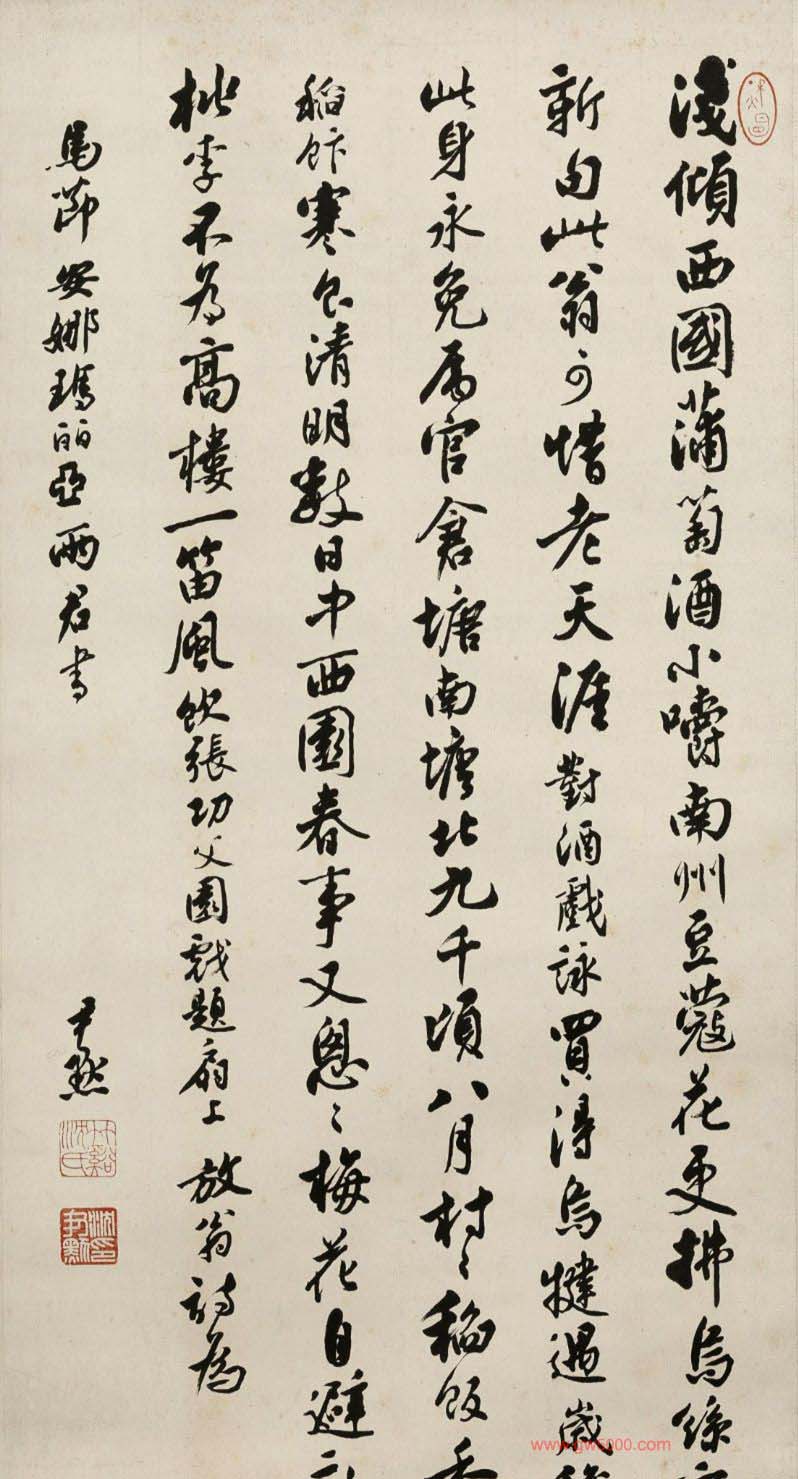 淺傾西國蒲萄酒小嚼南州豆蔻花更拂烏絲
新句此翁可惜老天涯對酒戲詠買得烏犍遇歲
此身永免屬官倉塘南塘北九千頃八月村〻稻飯香
稻飰寒食清明數日中西園春事又悤〻梅花自避新
桃李不為高樓一笛風飲張功父園戲題扇上放翁詩為
馬節安娜瑪麗亞兩君書
尹默
竹谿沈氏
www.gw5000.com